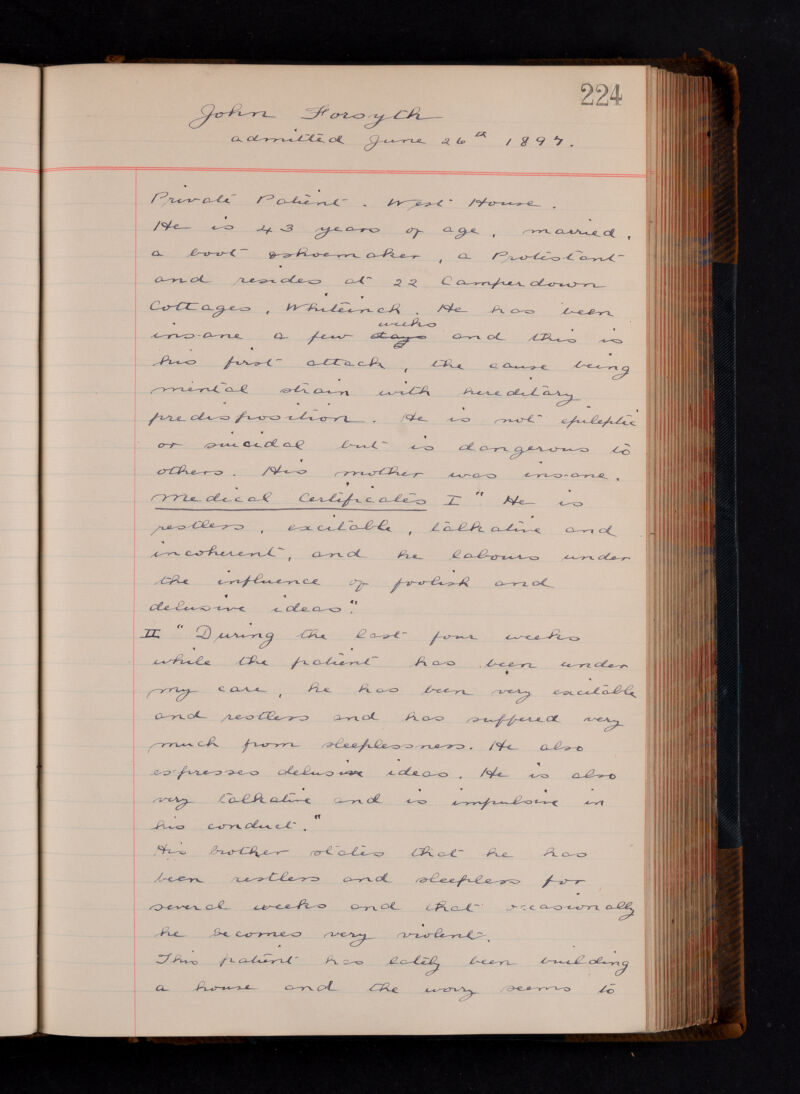 224
John Forsyth
admitted June 26th 1897.
Private Patient. West House.
He is 43 years of age, married,
a boot shoemaker, a Protestant
and resides at 22 Camperdown
Cottages, Whiteinch. He has been
weeks
insane a few days and this is
his first attack, the cause being
mental strain with hereditary
predisposition. He is not epileptic
or suicidal but is dangerous to
others. His mother was insane.
Medical Certificates I "He is
restless, excitable, talkative and
incoherent, and he labours under
the influence of foolish and
delusive ideas".
II "During the last four weeks
while the patient has been under
my care, he has been very excitable
and restless and has suffered very
much from sleeplessness. He also
expresses delusive ideas. He is also
very talkative and is impulsive in
his conduct."
His brother states that he has
been restless and sleepless for
several weeks and that occasionally
he becomes very violent.
This patient has lately been building
a house and the worry seems to